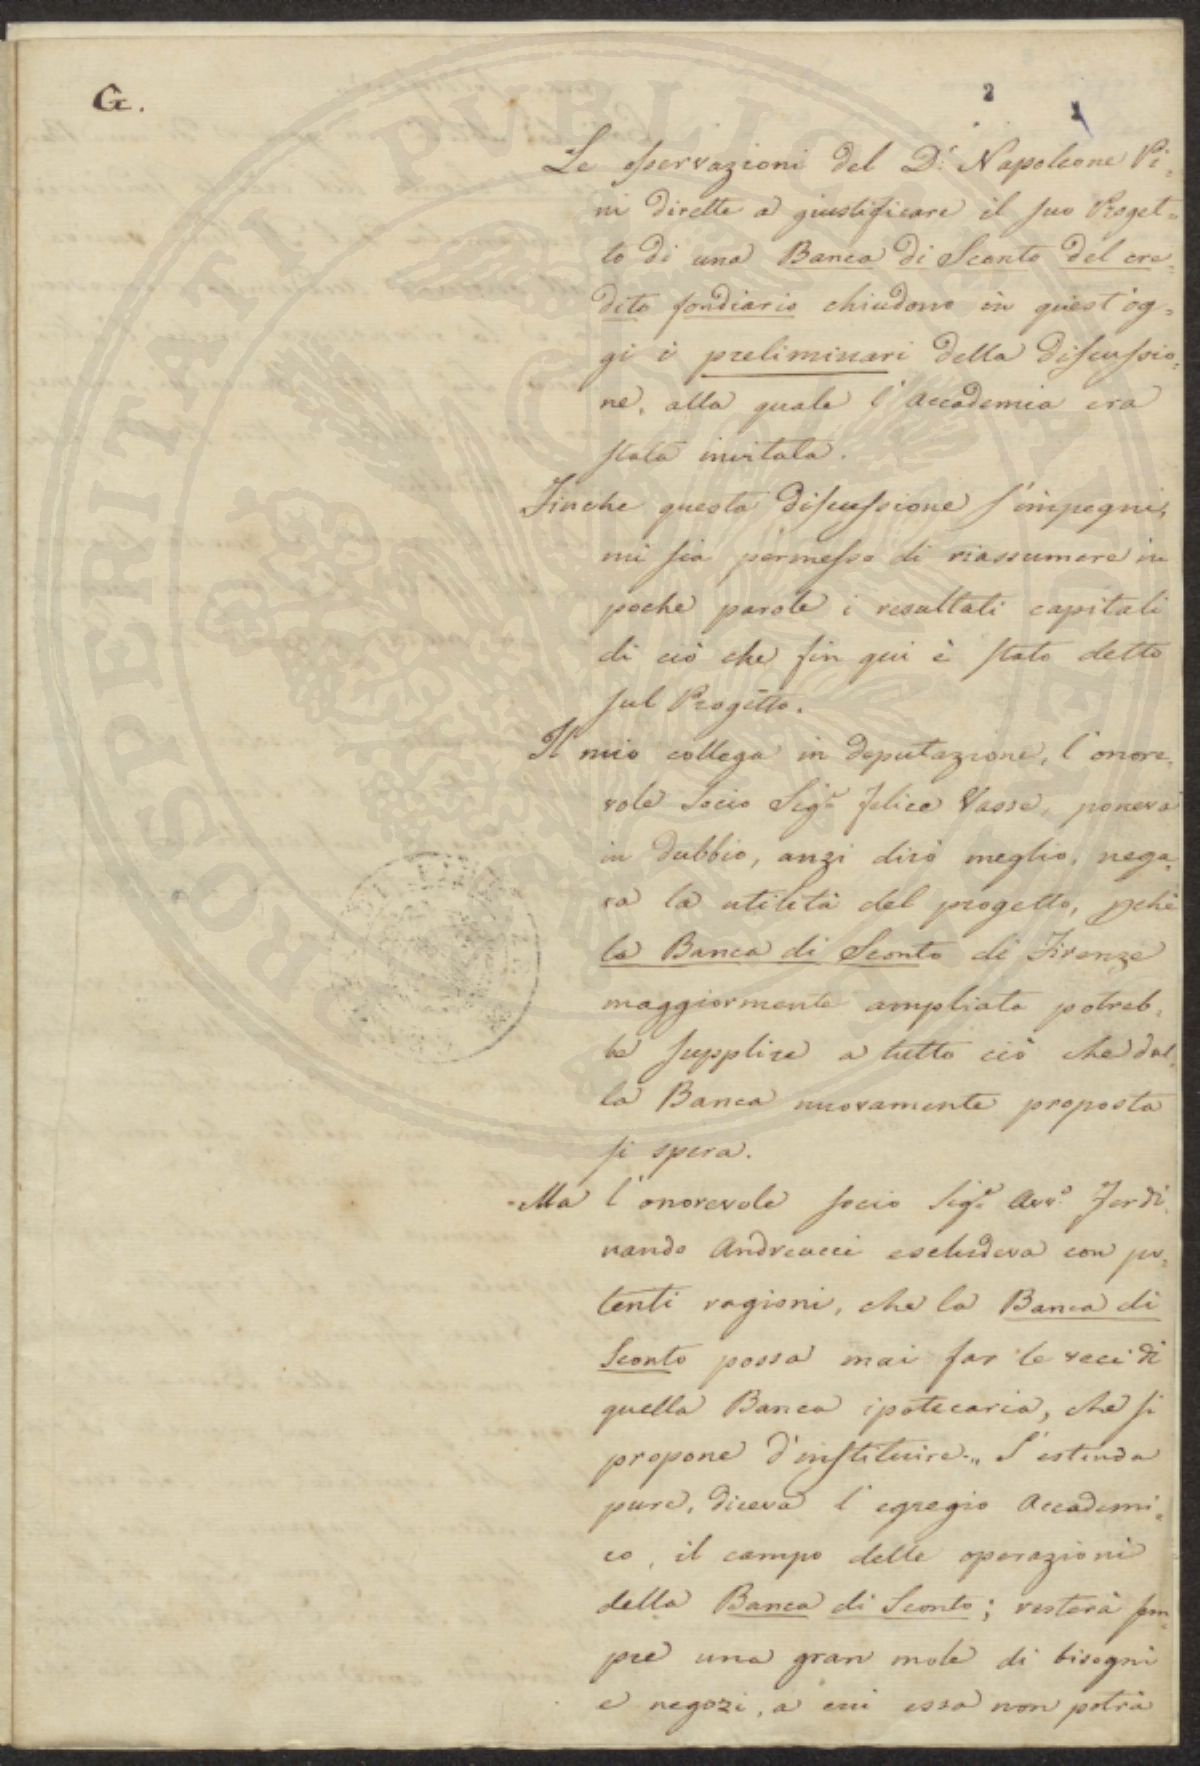 G.
2
Le osservazioni del D.r Napoleone Pi=
ni dirette a giustificare il suo Proget=
to di una Banca di Sconto del cre=
dito fondiario chiudono in quest'og=
gi i preliminari della discussio=
ne, alla quale l'Accademia era
stata invitata.
Finche questa discussione s'impegni,
mi sia permesso di riassumere in
poche parole i resultati capitali
di ciò che fin qui è stato detto
sul Progetto.
Il mio collega in deputazione, l'onore=
vole Socio Sig.r Felice Vasse, poneva
in dubbio, anzi dirò meglio, nega=
va la utilità del progetto, pchè
la Banca di Sconto di Firenze
maggiormente ampliata potreb=
be supplire a tutto ciò che dal=
la Banca nuovamente proposta
si spera.
Ma l'onorevole socio Sig.r Avv.o Ferdi=
nando Andreucci escludeva con po=
tenti ragioni, che la Banca di
Sconto possa mai far le veci di
quella Banca ipotecaria, che si
propone d'instituire. „ S'estenda
pure, diceva l'egregio Accademi=
co, il campo delle operazioni
della Banca di Sconto; resterà sem=
pre una gran mole di bisogni
e negozi, a cui essa non potrà
PROSPERITATI PUBLICAE